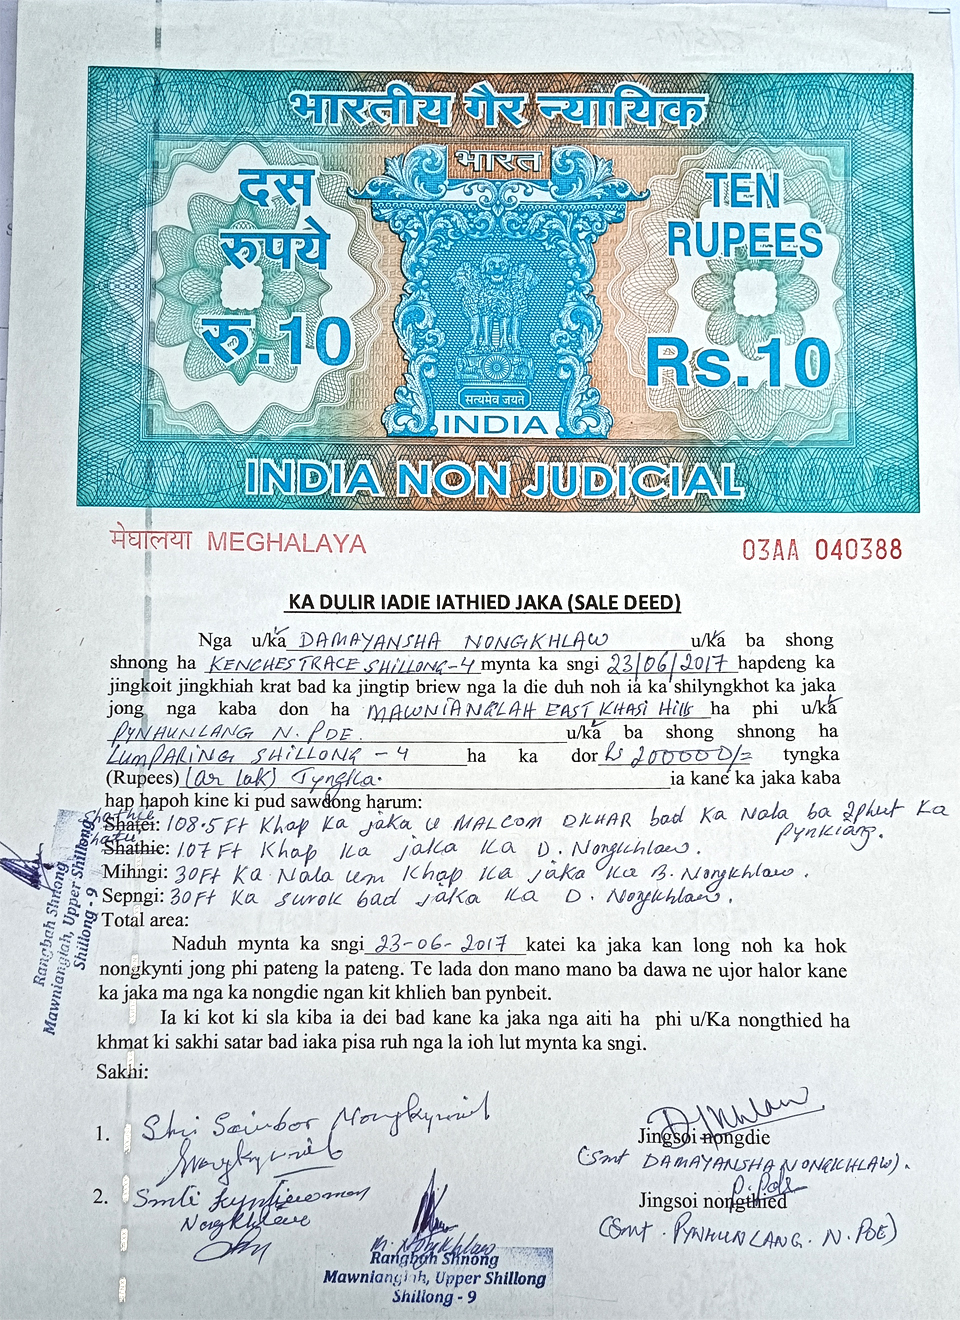 भारतीय गैर न्यायिक
भारत
दस
रुपये
रु.10
TEN
RUPEES
Rs.10
सत्यमेव जयते
INDIA
INDIA NON JUDICIAL
मेघालया MEGHALAYA
03AA 040388
KA DULIR IADIE IATHIED JAKA (SALE DEED)
Nga u/ka DAMAYANSHA NONGKHLAW u/ka ba shong
shnong ha KENCHESTRACE SHILLONG-4 mynta ka sngi 23/06/2017 hapdeng ka
jingkoit jingkhiah krat bad ka jingtip briew nga la die duh noh ia ka shilyngkhot ka jaka
jong nga kaba don ha MAWNIANGLAH EAST KHASI Hills ha phi u/ka
PYNHUNLANG N. PDE. u/ka ba shong shnong ha
LUMPARING SHILLONG - 4 ha ka dor Rs 200000/= tyngka
(Rupees) (ar lak) Tyngka. ia kane ka jaka kaba
hap hapoh kine ki pud sawdong harum:
Shathie
Shatei: 108.5 Ft Khap Ka jaka u MALCOM DKHAR bad Ka Nala ba 2phut Ka
Pynkiang.
Shathie: 107 Ft Khap Ka jaka Ka D. Nongkhlaw.
Mihngi: 30 Ft Ka Nala um Khap Ka jaka Ka B. Nongkhlaw.
Sepngi: 30 Ft Ka surok bad jaka Ka D. Nongkhlaw.
Total area:
Naduh mynta ka sngi 23-06-2017 katei ka jaka kan long noh ka hok
nongkynti jong phi pateng la pateng. Te lada don mano mano ba dawa ne ujor halor kane
ka jaka ma nga ka nongdie ngan kit khlieh ban pynbeit.
Ia ki kot ki sla kiba ia dei bad kane ka jaka nga aiti ha phi u/Ka nongthied ha
khmat ki sakhi satar bad iaka pisa ruh nga la ioh lut mynta ka sngi.
Sakhi:
1. Shri Sainbor Nongkynrih
Jingsoi nongdie
(Smt DAMAYANSHA NONGKHLAW).
2. Smti
Nongkhlaw
P. Pde
Jingsoi nongthied
(Smt. PYNHUNLANG. N. PDE)
Rangbah Shnong
Mawnianglah, Upper Shillong
Shillong - 9
Rangbah Shnong
Mawnianglah, Upper Shillong
Shillong - 9